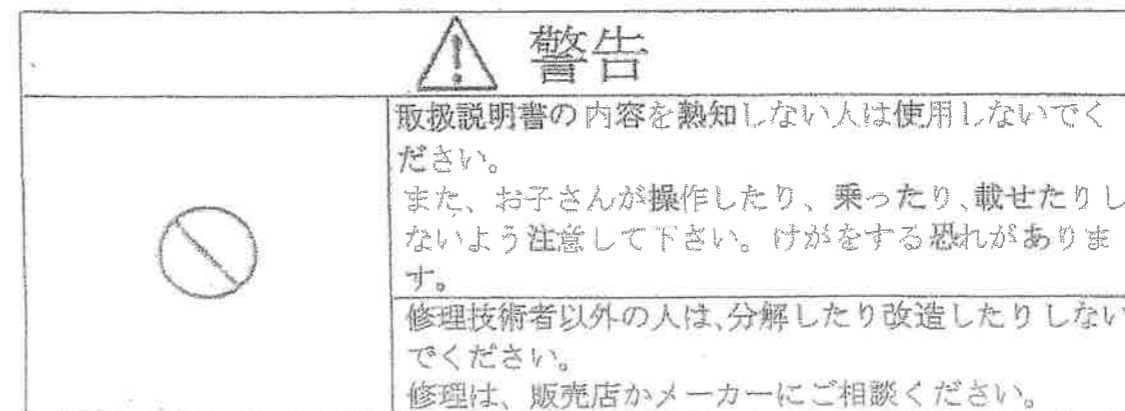 警告
取扱説明書の内容を熟知しない人は使用しないでく
ださい。
また、お子さんが操作したり、乗ったり、載せたりし
ないよう注意して下さい。けがをする恐れがありま
す。
修理技術者以外の人は、分解したり改造したりしない
でください。
修理は、販売店かメーカーにご相談ください。